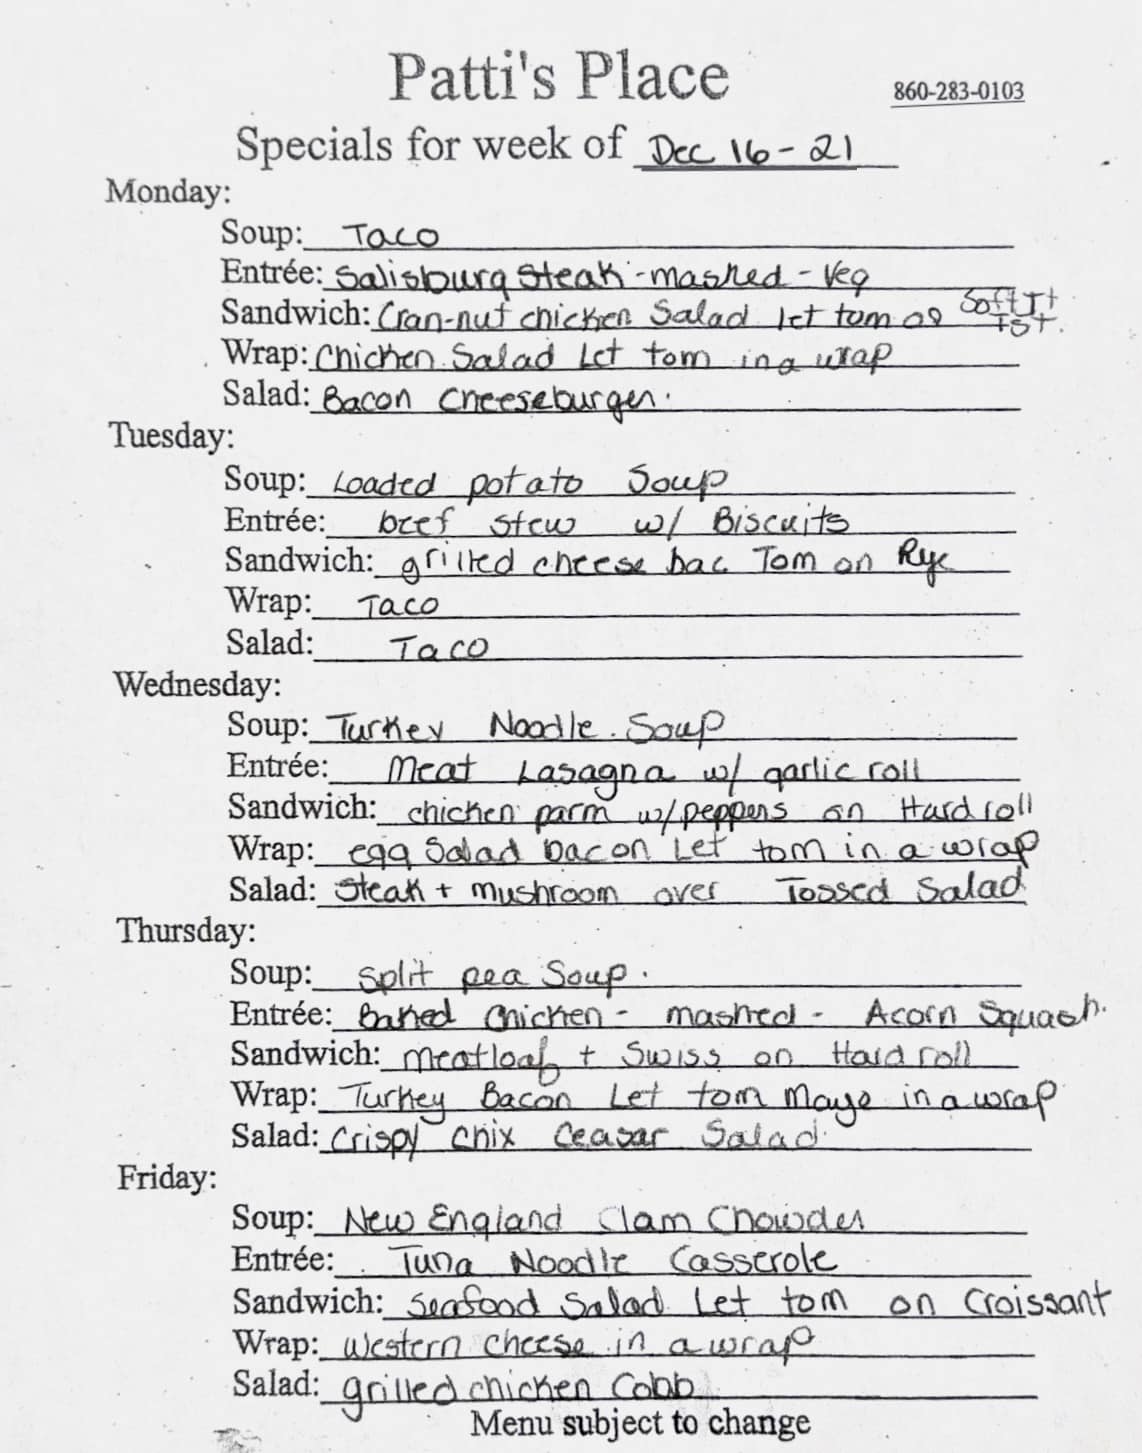 Patti's Place
860-283-0103
Specials for week of Dec 16-21
Monday:
Soup: Taco
Entrée: Salisburg Steak - mashed - Veg
Sandwich: Cran-nut chicken Salad let tom on Soft It tst.
Wrap: Chicken Salad Let tom in a wrap
Salad: Bacon Cheeseburger.
Tuesday:
Soup: Loaded potato Soup
Entrée: beef stew w/ Biscuits
Sandwich: grilled cheese bac Tom on Rye
Wrap: Taco
Salad: Taco
Wednesday:
Soup: Turkey Noodle Soup
Entrée: Meat Lasagna w/ garlic roll
Sandwich: chicken parm w/peppers on Hard roll
Wrap: egg Salad bacon Let tom in a wrap
Salad: Steak + mushroom over Tossed Salad
Thursday:
Soup: split pea Soup.
Entrée: Baked Chicken - mashed - Acorn Squash.
Sandwich: meatloaf + Swiss on Hard roll
Wrap: Turkey Bacon Let tom Mayo in a wrap
Salad: Crispy Chix Ceasar Salad
Friday:
Soup: New England Clam Chowder
Entrée: Tuna Noodle Casserole
Sandwich: Seafood Salad Let tom on Croissant
Wrap: Western cheese in a wrap
Salad: grilled chicken Cobb
Menu subject to change